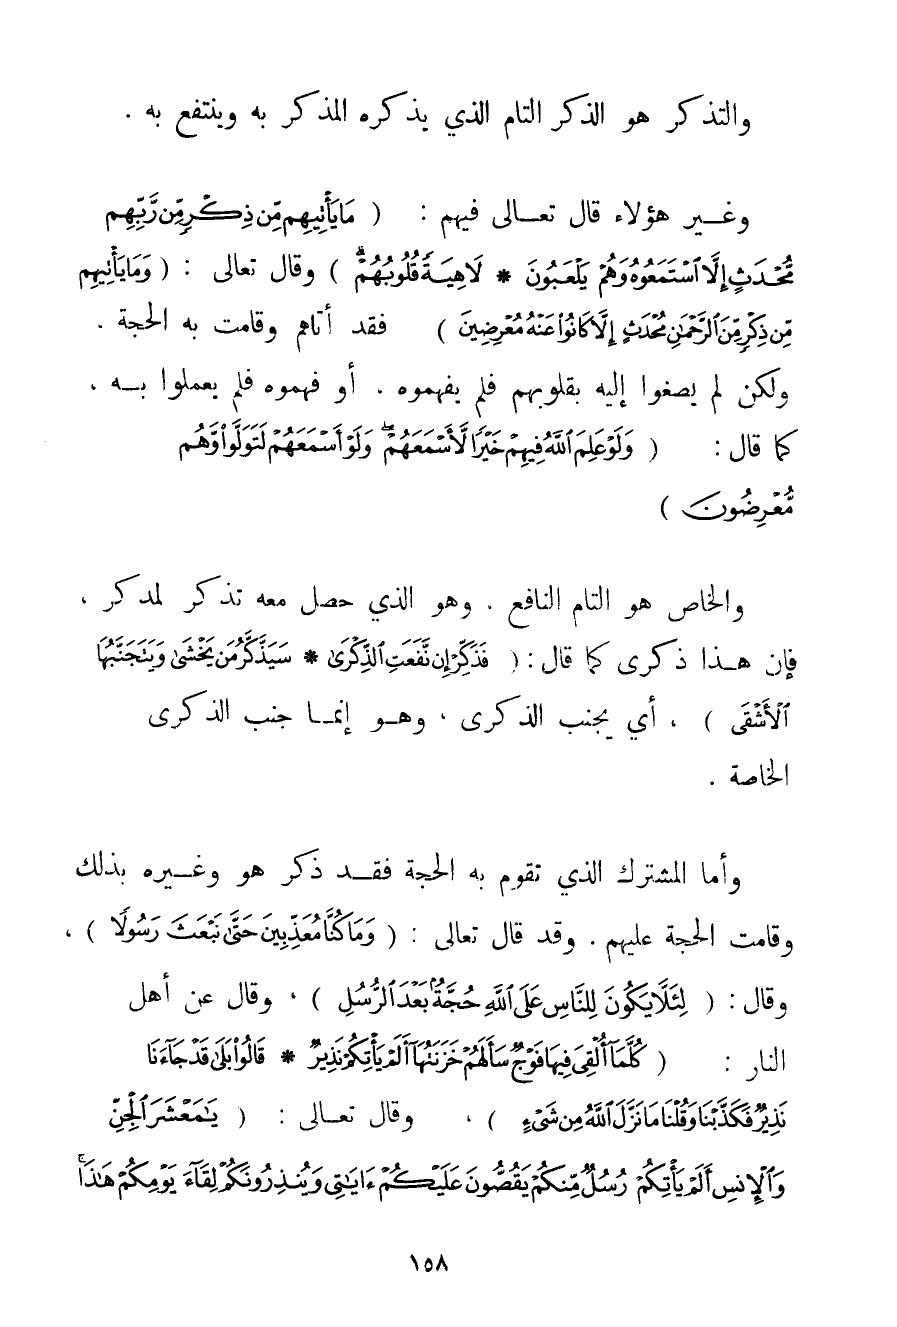 والتذكر هو الذكر التام الذي يذكره المذكر به وينتفع به .
وغــير هؤلاء قال تعــالى فيهم : ( مَا يَأْتِيهِم مِّن ذِكْرٍ مِّن رَّبِّهِم
مُّحْدَثٍ إِلَّا ٱسْتَمَعُوهُ وَهُمْ يَلْعَبُونَ * لَاهِيَةً قُلُوبُهُمْ ۗ ) وقال تعالى : ( وَمَا يَأْتِيهِم
مِّن ذِكْرٍ مِّنَ ٱلرَّحْمَٰنِ مُحْدَثٍ إِلَّا كَانُوا۟ عَنْهُ مُعْرِضِينَ ) فقد أتاهم وقامت به الحجة .
ولكن لم يصغوا إليه بقلوبهم فلم يفهموه ، أو فهموه فلم يعملوا بــه ،
كما قال : ( وَلَوْ عَلِمَ ٱللَّهُ فِيهِمْ خَيْرًا لَّأَسْمَعَهُمْ ۖ وَلَوْ أَسْمَعَهُمْ لَتَوَلَّوا۟ وَّهُم
مُّعْرِضُونَ )
والخاص هو التام النافع . وهو الذي حصل معه تذكر لمدكر ،
فإن هــذا ذكرى كما قال : ( فَذَكِّرْ إِن نَّفَعَتِ ٱلذِّكْرَىٰ * سَيَذَّكَّرُ مَن يَخْشَىٰ وَيَتَجَنَّبُهَا
ٱلْأَشْقَى ) ، أي يجنب الذكرى ، وهــو إنمــا جنب الذكرى
الخاصة .
وأما المشترك الذي تقوم به الحجة فقــد ذكر هو وغــيره بذلك
وقامت الحجة عليهم . وقد قال تعالى : ( وَمَا كُنَّا مُعَذِّبِينَ حَتَّىٰ نَبْعَثَ رَسُولًا ) ،
وقال : ( لِئَلَّا يَكُونَ لِلنَّاسِ عَلَى ٱللَّهِ حُجَّةٌۢ بَعْدَ ٱلرُّسُلِ ) ، وقال عن أهل
النار : ( كُلَّمَآ أُلْقِىَ فِيهَا فَوْجٌ سَأَلَهُمْ خَزَنَتُهَآ أَلَمْ يَأْتِكُمْ نَذِيرٌ * قَالُوا۟ بَلَىٰ قَدْ جَآءَنَا
نَذِيرٌ فَكَذَّبْنَا وَقُلْنَا مَا نَزَّلَ ٱللَّهُ مِن شَىْءٍ ) ، وقال تعــالى : ( يَٰمَعْشَرَ ٱلْجِنِّ
وَٱلْإِنسِ أَلَمْ يَأْتِكُمْ رُسُلٌ مِّنكُمْ يَقُصُّونَ عَلَيْكُمْ ءَايَٰتِى وَيُنذِرُونَكُمْ لِقَآءَ يَوْمِكُمْ هَٰذَا ۚ
١٥٨